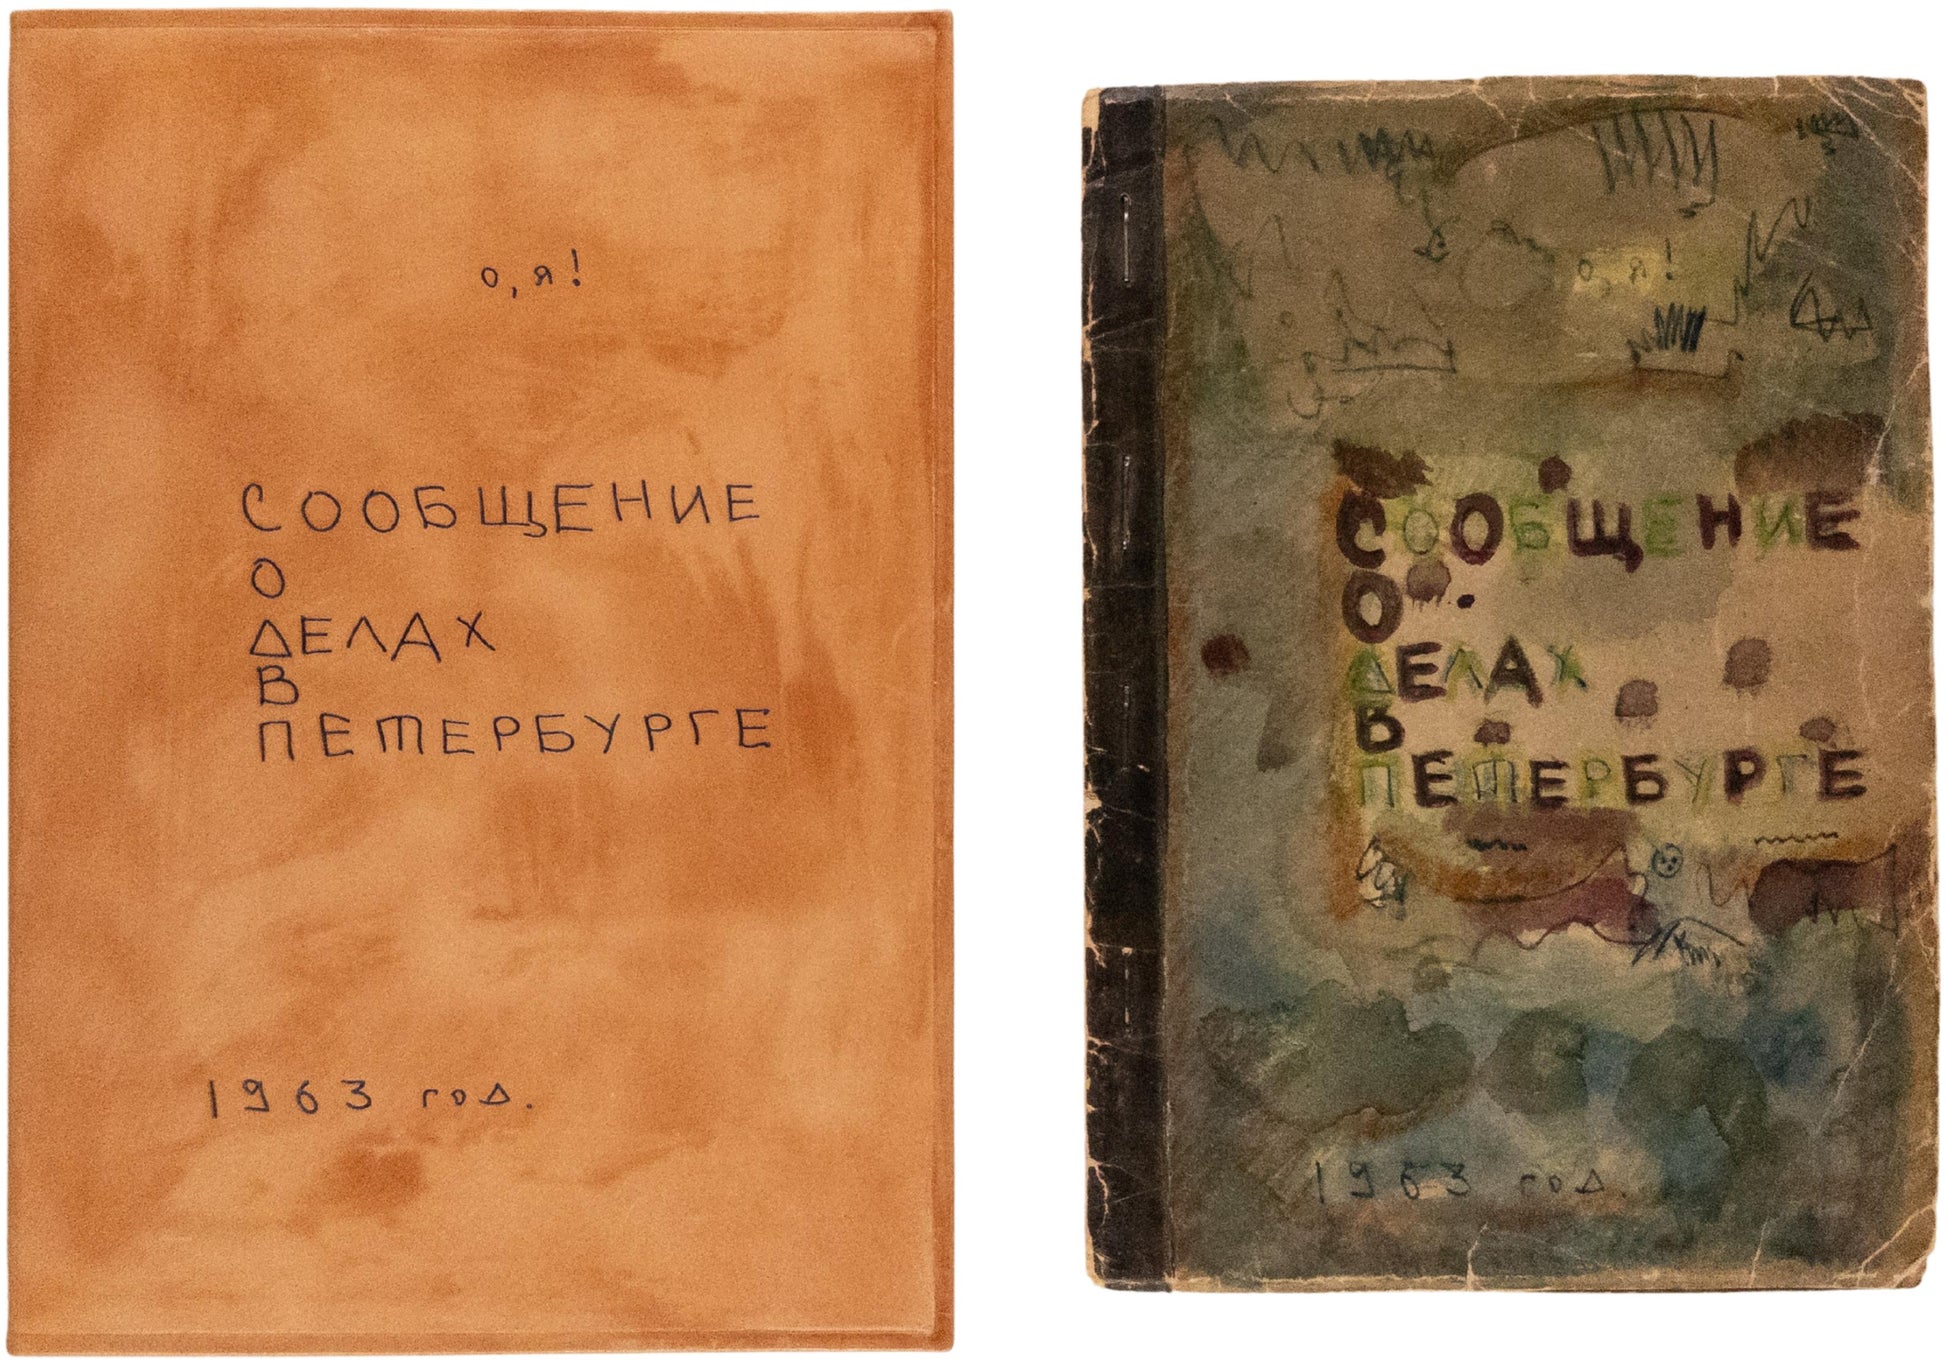 о, я!
СООБЩЕНИЕ
О
ДЕЛАХ
В
ПЕТЕРБУРГЕ
1963 год.
о, я!
СООБЩЕНИЕ
О
ДЕЛАХ
В
ПЕТЕРБУРГЕ
1963 год.